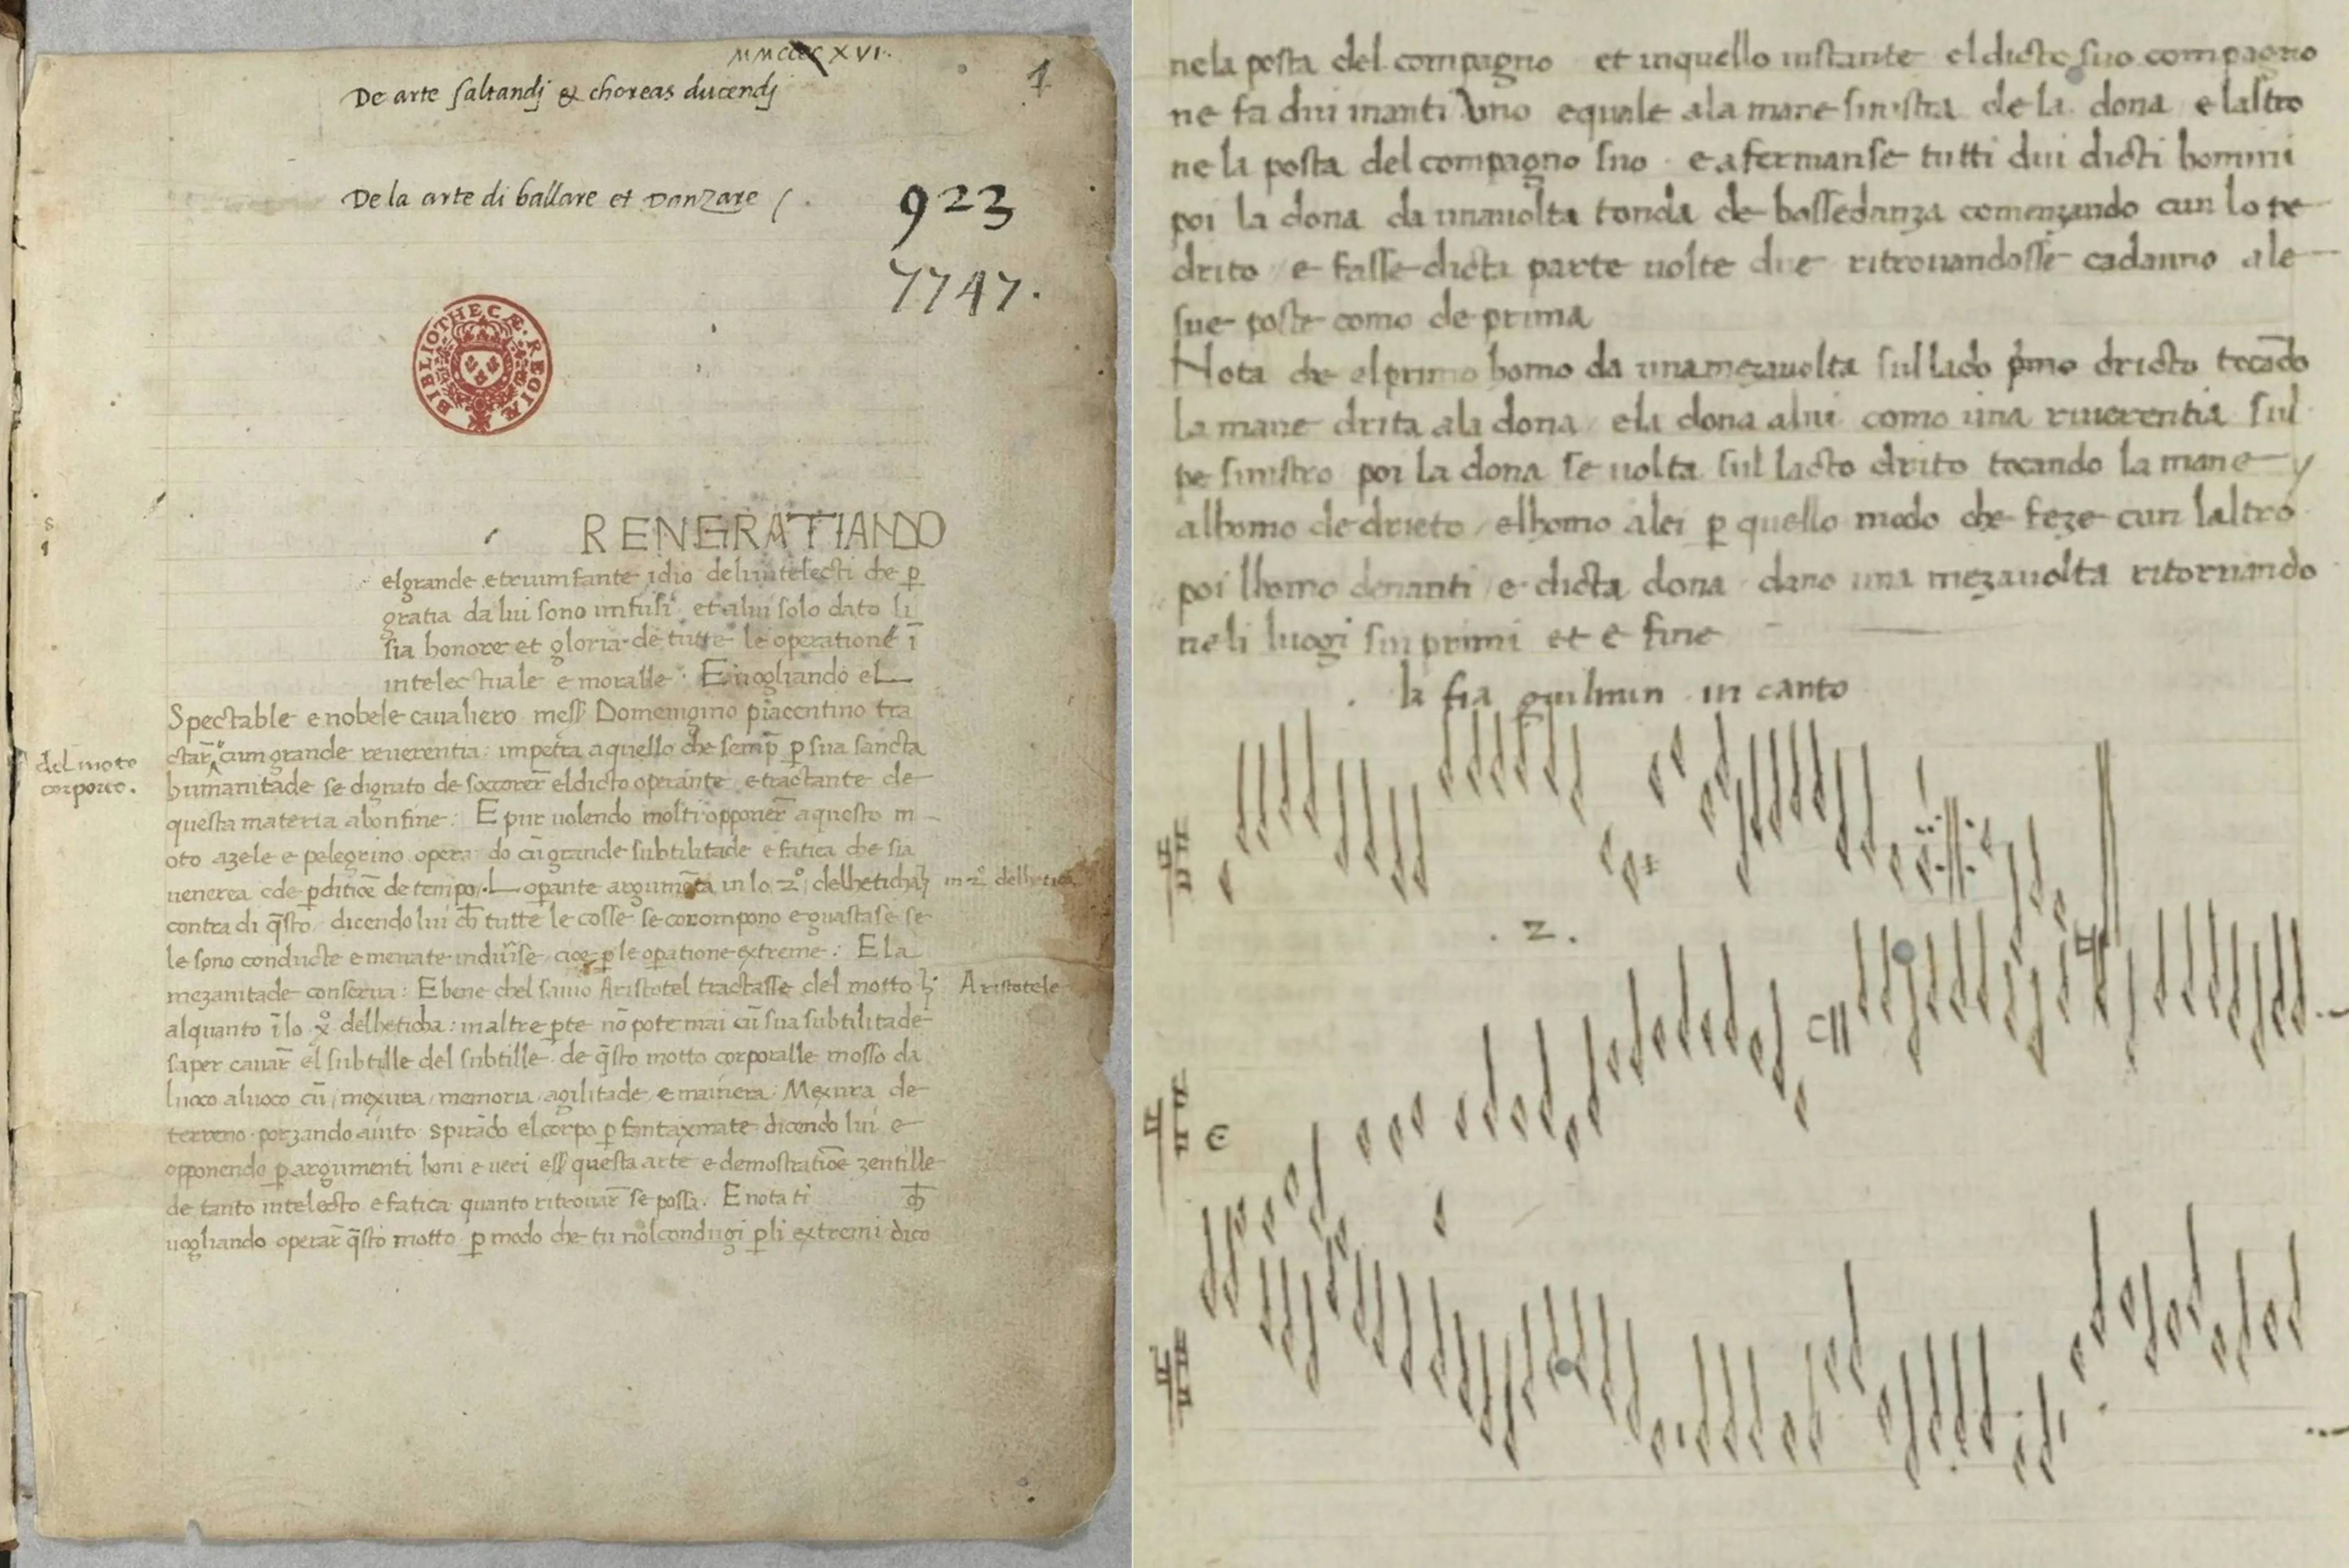 MMCCCC XVI.
1
De arte saltandj & choreas ducendj
De la arte di ballare et Danzare
923
7747.
BIBLIOTHECÆ REGIÆ
RENGRATIANDO
el grande e triumfante idio deli intelecti che ꝑ
gratia da lui sono infusi et alui solo dato li
sia honore et gloria de tutte le operatione ī
intelectuale e moralle. E uogliando el
Spectable e nobele caualiero mess Domenigino piacentino tra
ctar̄ cum grande reuerentia: impetra a quello che semp̄ ꝑ sua sancta
del moto
corporeo.
humanitade se dignato de soccorer̄ el dicto operante e tractante de
questa materia a bon fine: E pur uolendo molti opponer̄ a questo m
oto azele e pelegrino opera do cū grande subtilitade e fatica che sia
uenerea e de ꝑditiōe de tempo. L operante argumēta in lo 2º delhetichā
contra di q̄sto dicendo lui cħ tutte le cosse se corompono e guastase se
le sono conducte e menate indiuise cioe ꝑ le oꝑatione extreme: E la
mezanitade conserua: E bene chel sauio Aristotel tractasse del motto
Aristotele
alquanto ī lo xº delheticha: in altre ꝑte nō pote mai cū sua subtilitade
saper cauar̄ el subtille del subtille de q̄sto motto corporalle mosso da
luoco aluoco cū mexura memoria agilitade e mainera Mexura de
terreno porzando aiuto spirādo el corpo ꝑ fantaxmate dicendo lui e
opponendo ꝑ argumenti boni e ueri ess questa arte e demostratiōe zentille
de tanto intelecto e fatica quanto ritrouar̄ se possa. E nota ti cħ
uogliando operar̄ q̄sto motto ꝑ modo che tu nol condugi ꝑ li extremi dico
nela posta del compagno et inquello instante el dicto suo compagno
ne fa dui inanti uno equale ala mane sinistra de la dona e laltro
ne la posta del compagno suo e afermanse tutti dui dicti homini
poi la dona da una uolta tonda de bassedanza comenzando cun lo pe
drito e fasse dicta parte uolte due ritrouandosse cadauno ale
sue poste como de prima
Nota che el primo homo da una mezauolta sul lado p̄mo dricto tocādo
la mane drita ala dona e la dona alui como una riuerentia sul
pe sinistro poi la dona se uolta sul lacto drito tocando la mane
alhomo de drieto elhomo alei ꝑ quello modo che feze cun laltro
poi lhomo denanti e dicta dona dano una mezauolta ritornando
neli luogi sui primi et è fine
la fia guilmin in canto
.2.